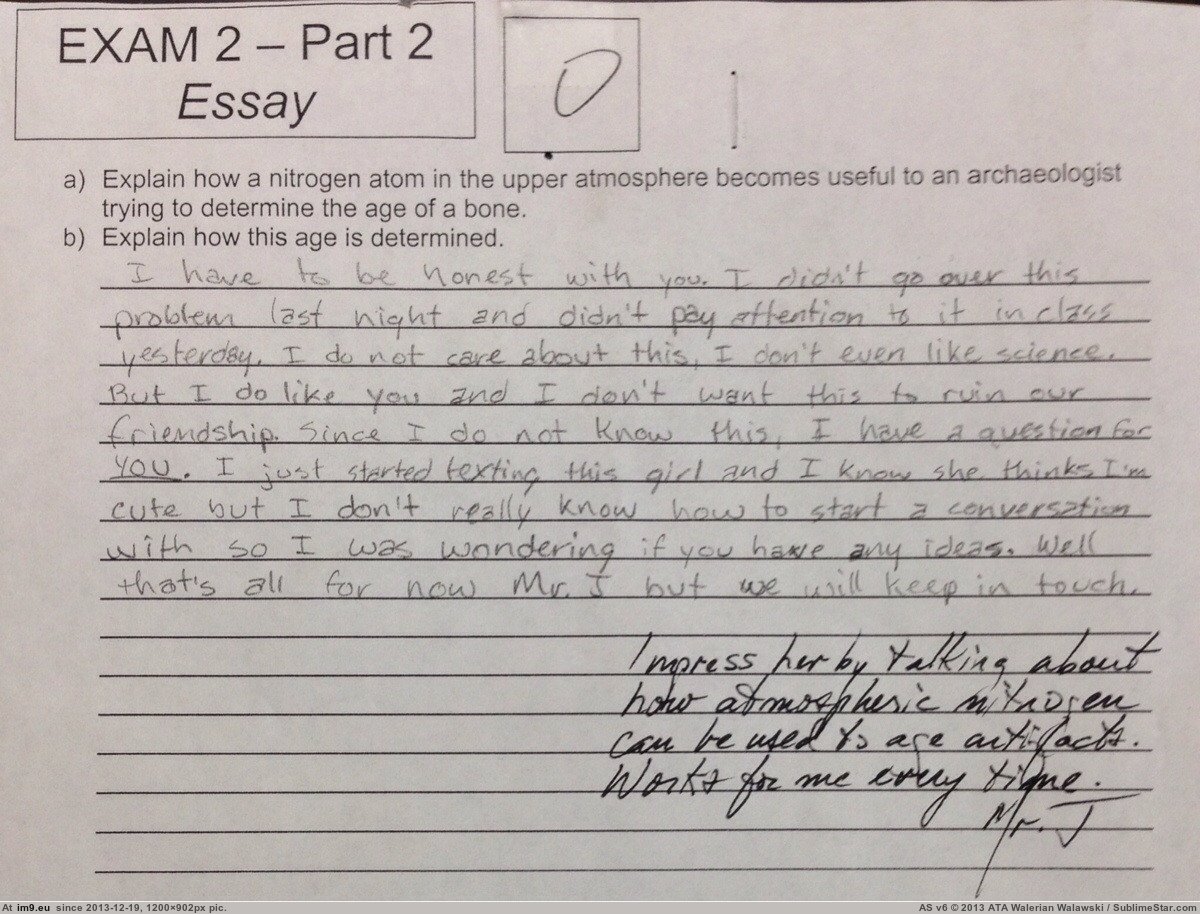 EXAM 2 – Part 2
Essay
0
a) Explain how a nitrogen atom in the upper atmosphere becomes useful to an archaeologist
trying to determine the age of a bone.
b) Explain how this age is determined.
I have to be honest with you. I didn't go over this
problem last night and didn't pay attention to it in class
yesterday. I do not care about this, I don't even like science.
But I do like you and I don't want this to ruin our
friendship. Since I do not know this, I have a question for
YOU. I just started texting this girl and I know she thinks I'm
cute but I don't really know how to start a conversation
with so I was wondering if you have any ideas. Well
that's all for now Mr. J but we will keep in touch.
Impress her by talking about
how atmospheric nitrogen
can be used to age artifacts.
Works for me every time.
Mr. J
At im9.eu since 2013-12-19, 1200×902px pic.
AS v6 © 2013 ATA Walerian Walawski / SublimeStar.com